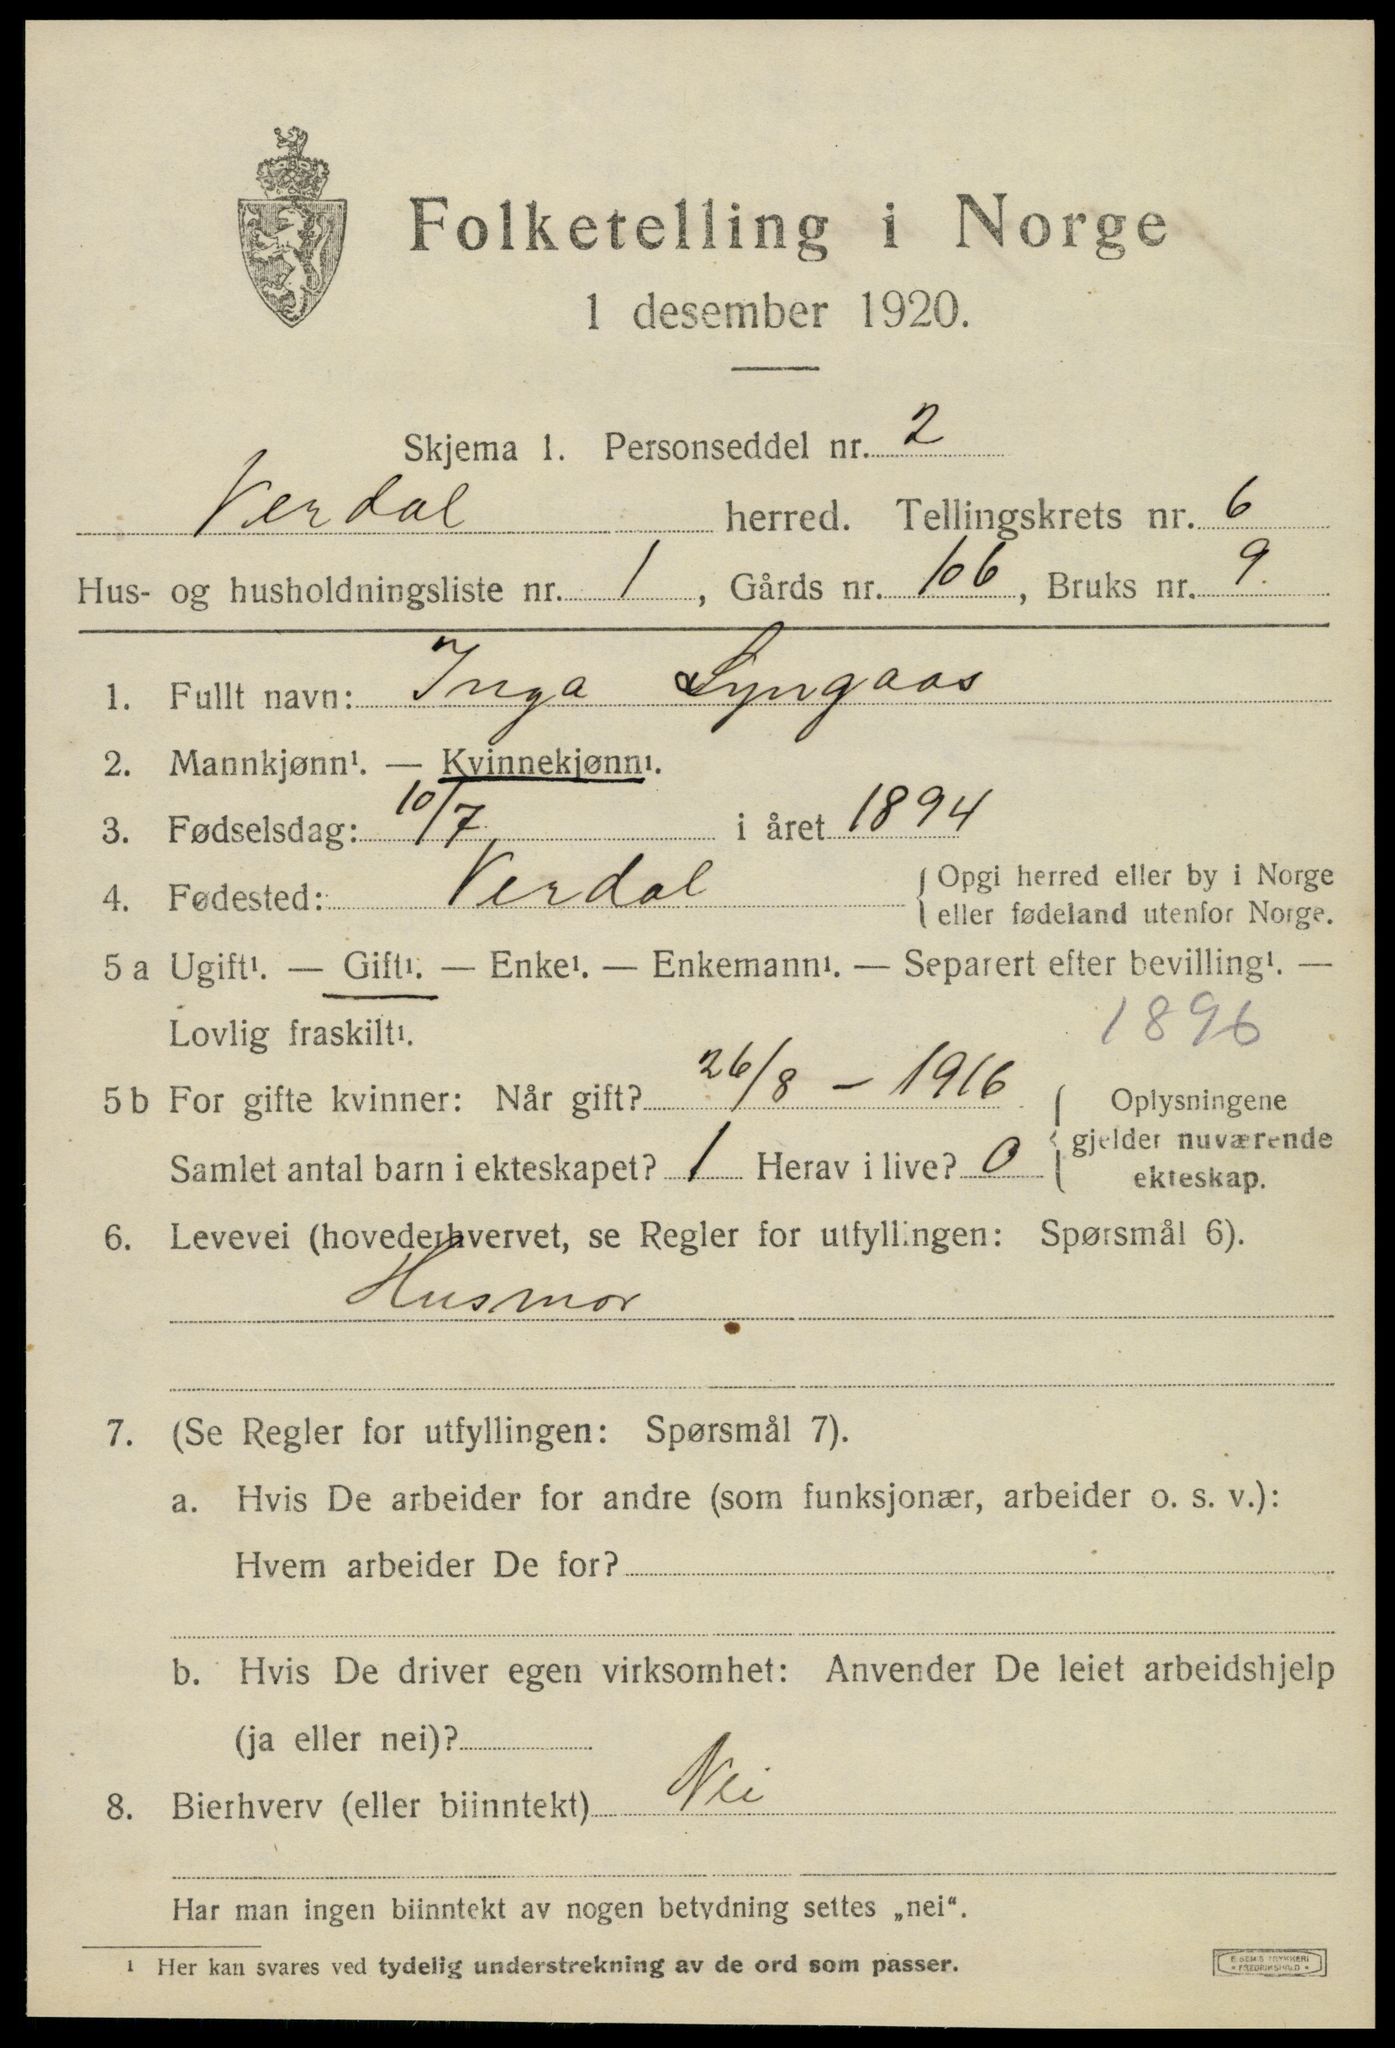 Folketelling i Norge
1 desember 1920.
Skjema 1. Personseddel nr. 2
Verdal herred. Tellingskrets nr. 6
Hus- og husholdningsliste nr. 1, Gårds nr. 106, Bruks nr. 9
1. Fullt navn: Inga Lyngaas
2. Mannkjønn¹. — Kvinnekjønn¹.
3. Fødselsdag: 10/7 i året 1894
4. Fødested: Verdal {Opgi herred eller by i Norge
eller fødeland utenfor Norge.
5 a Ugift¹. — Gift¹. — Enke¹. — Enkemann¹. — Separert efter bevilling¹. —
Lovlig fraskilt¹. 1896
5 b For gifte kvinner: Når gift? 26/8 – 1916 { Oplysningene
Samlet antal barn i ekteskapet? 1 Herav i live? 0 gjelder nuværende
ekteskap.
6. Levevei (hovederhvervet, se Regler for utfyllingen: Spørsmål 6).
Husmor
7. (Se Regler for utfyllingen: Spørsmål 7).
a. Hvis De arbeider for andre (som funksjonær, arbeider o. s. v.):
Hvem arbeider De for?
b. Hvis De driver egen virksomhet: Anvender De leiet arbeidshjelp
(ja eller nei)?
8. Bierhverv (eller biinntekt) Nei
Har man ingen biinntekt av nogen betydning settes „nei“.
¹ Her kan svares ved tydelig understrekning av de ord som passer.